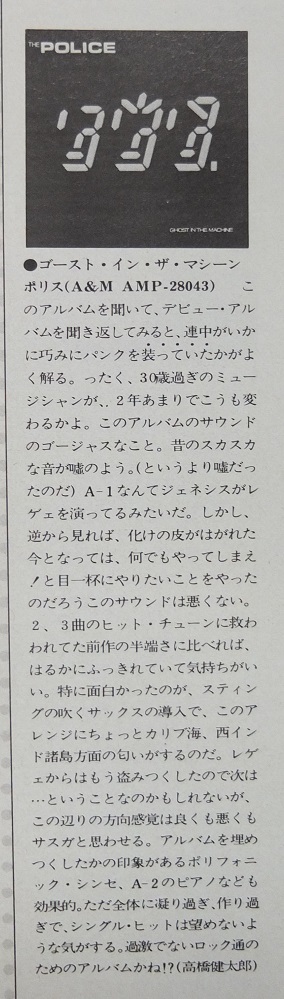 THE POLICE
GHOST IN THE MACHINE
●ゴースト・イン・ザ・マシーン
ポリス(A&M AMP-28043)　こ
のアルバムを聞いて、デビュー・アル
バムを聞き返してみると、連中がいか
に巧みにパンクを装っていたかがよ
く解る。ったく、30歳過ぎのミュー
ジシャンが、、２年あまりでこうも変
わるかよ。このアルバムのサウンド
のゴージャスなこと。昔のスカスカ
な音が嘘のよう。(というより嘘だっ
たのだ) A-1なんてジェネシスがレ
ゲェを演ってるみたいだ。しかし、
逆から見れば、化けの皮がはがれた
今となっては、何でもやってしまえ
！と目一杯にやりたいことをやった
のだろうこのサウンドは悪くない。
２、３曲のヒット・チューンに救わ
われてた前作の半端さに比べれば、
はるかにふっきれていて気持ちがい
い。特に面白かったのが、スティン
グの吹くサックスの導入で、このア
レンジにちょっとカリブ海、西イン
ド諸島方面の匂いがするのだ。レゲ
ェからはもう盗みつくしたので次は
…ということなのかもしれないが、
この辺りの方向感覚は良くも悪くも
サスガと思わせる。アルバムを埋め
つくしたかの印象があるポリフォニ
ック・シンセ、A-2のピアノなども
効果的。ただ全体に凝り過ぎ、作り過
ぎで、シングル・ヒットは望めないよ
うな気がする。過激でないロック通の
ためのアルバムかね!?(高橋健太郎)